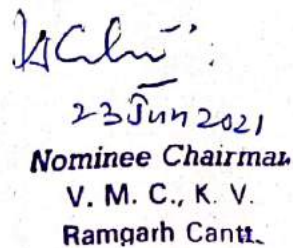 23 Jun 2021
Nominee Chairman
V. M. C., K. V.
Ramgarh Cantt.